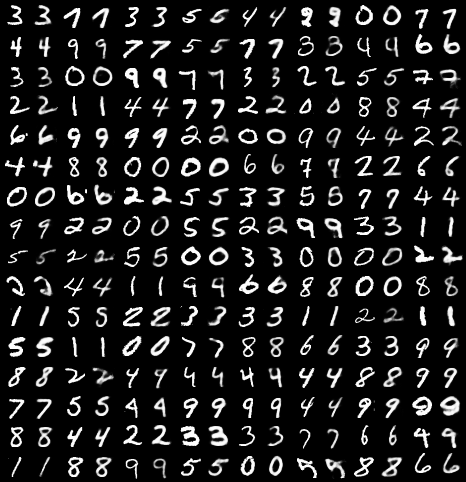 3 3 7 7 3 3 5 5 4 4 2 2 0 0 7 7
4 4 9 9 7 7 5 5 7 7 3 3 4 4 6 6
3 3 0 0 9 9 7 7 3 3 2 2 5 5 7 7
2 2 1 1 4 4 7 7 2 2 0 0 8 8 4 4
6 6 9 9 9 9 2 2 0 0 9 9 4 4 2 2
4 4 8 8 0 0 0 0 6 6 7 7 2 2 6 6
0 0 6 6 2 2 5 5 3 3 5 5 7 7 4 4
9 9 2 2 0 0 5 5 2 2 9 9 3 3 1 1
5 5 2 2 5 5 0 0 3 3 0 0 0 0 2 2
2 2 4 4 1 1 9 9 6 6 8 8 0 0 8 8
1 1 5 5 2 2 3 3 3 3 1 1 2 2 1 1
5 5 1 1 0 0 7 7 8 8 6 6 3 3 9 9
8 8 2 2 4 9 4 4 4 4 4 4 8 8 9 9
7 7 5 5 4 4 9 9 9 9 4 4 9 9 9 9
8 8 4 4 2 2 3 3 3 3 7 7 6 6 4 9
1 1 8 8 9 9 5 5 0 0 8 8 6 6